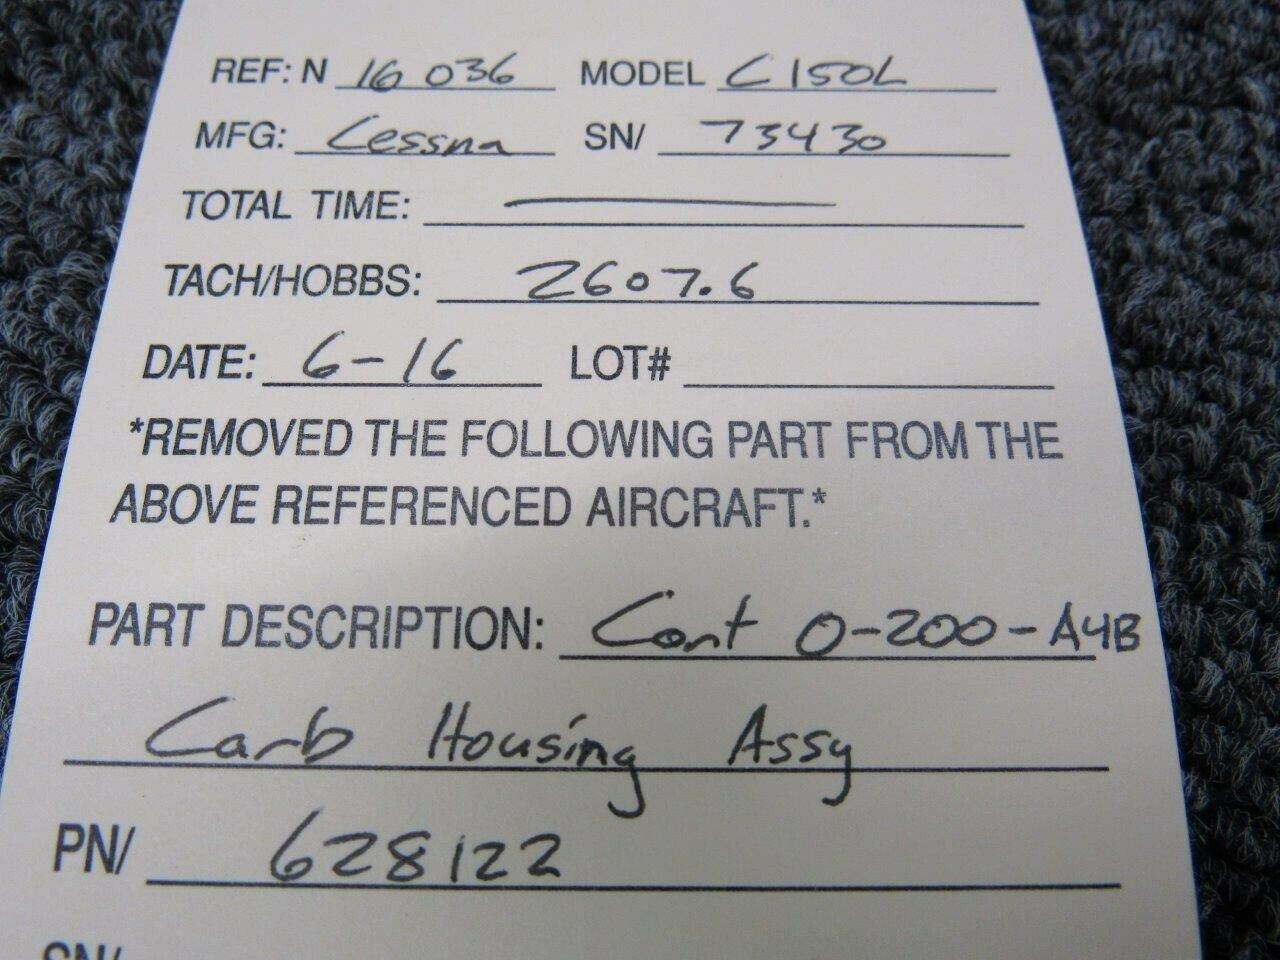 REF: N 16036 MODEL C150L
MFG: Cessna SN/ 73430
TOTAL TIME:
TACH/HOBBS: 2607.6
DATE: 6-16 LOT#
*REMOVED THE FOLLOWING PART FROM THE
ABOVE REFERENCED AIRCRAFT.*
PART DESCRIPTION: Cont O-200-A4B
Carb Housing Assy
PN/ 628122
SN/